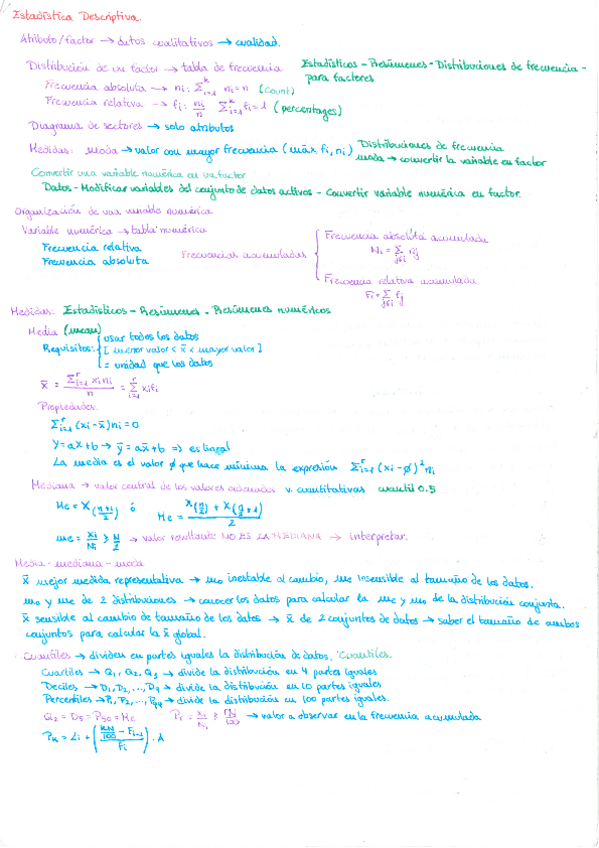 Estadística Descriptiva.
Atributo/factor → datos cualitativos → cualidad.
Distribución de un factor → tabla de frecuencia Estadísticos - Resúmenes - Distribuciones de frecuencia - para factores
Frecuencia absoluta → nᵢ: Σᵏᵢ₌₁ nᵢ = n (count)
Frecuencia relativa → fᵢ: nᵢ/n Σᵏᵢ₌₁ fᵢ = 1 (percentages)
Diagrama de sectores → solo atributos
Medidas: moda → valor con mayor frecuencia (máx fᵢ, nᵢ) Distribuciones de frecuencia
moda → convertir la variable en factor
Convertir una variable numérica en un factor
Datos - Modificar variables del conjunto de datos activos - Convertir variable numérica en factor.
Organización de una variable numérica
Variable numérica → tabla numérica
Frecuencia relativa
Frecuencia absoluta
Frecuencias acumuladas
Frecuencia absoluta acumulada
Nᵢ = Σ nⱼ
j≤i
Frecuencia relativa acumulada
Fᵢ = Σ fⱼ
j≤i
Medidas: Estadísticos - Resúmenes - Resúmenes numéricos
Media (mean)
Requisitos: { usar todos los datos
[ menor valor < x̄ < mayor valor ]
= unidad que los datos
x̄ = Σʳᵢ₌₁ xᵢnᵢ / n = Σʳᵢ₌₁ xᵢfᵢ
Propiedades:
Σʳᵢ₌₁ (xᵢ - x̄)nᵢ = 0
Y = aX + b → ȳ = ax̄ + b => es lineal
La media es el valor ϕ que hace mínima la expresión Σʳᵢ₌₁ (xᵢ - ϕ)² nᵢ
Mediana → valor central de los valores ordenados v. cuantitativas cuantil 0.5
Me = X₍ₙ₊₁/₂₎ ó Me = (X₍ₙ/₂₎ + X₍ₙ/₂₊₁₎) / 2
me = xᵢ/Nᵢ ≥ N/2 → valor resultante NO ES LA MEDIANA → interpretar.
Media - mediana - moda
x̄ mejor medida representativa → mo inestable al cambio, me insensible al tamaño de los datos.
mo y me de 2 distribuciones → conocer los datos para calcular la me y mo de la distribución conjunta.
x̄ sensible al cambio de tamaño de los datos → x̄ de 2 conjuntos de datos → saber el tamaño de ambos
conjuntos para calcular la x̄ global.
Cuantiles → dividen en partes iguales la distribución de datos. Cuantiles.
Cuartiles → Q₁, Q₂, Q₃ → divide la distribución en 4 partes iguales
Deciles → D₁, D₂, ..., D₉ → divide la distribución en 10 partes iguales
Percentiles → P₁, P₂, ..., P₉₉ → divide la distribución en 100 partes iguales.
Q₂ = D₅ = P₅₀ = Me Pᵣ = xᵢ/Nᵢ ≥ → valor a observar en la frecuencia acumulada
Pₖ = Lᵢ + ((KN/100 - Fᵢ₋₁) / fᵢ) · A